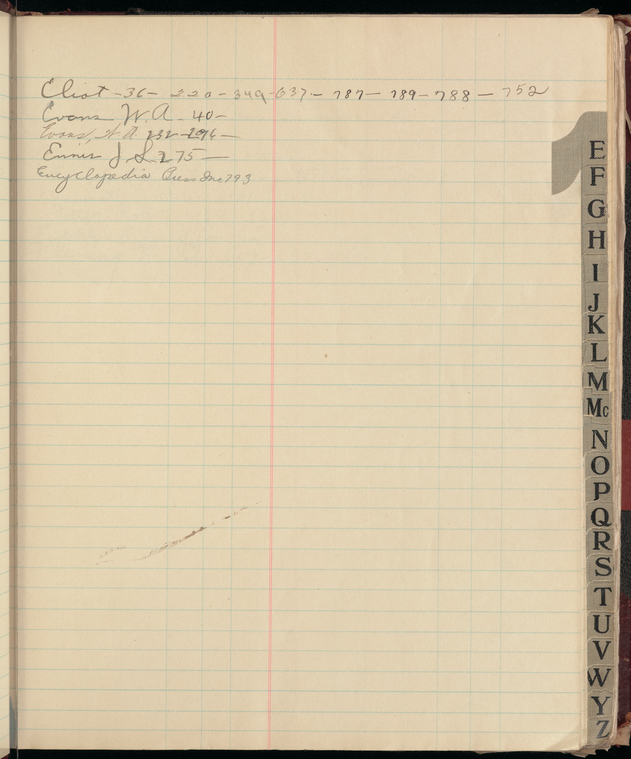 Eliot - 36 - 220 - 349 - 637 - 787 - 789 - 788 - 752
Evans W. A. - 40 -
Evans, W. A. 232 - 296 -
Ennis J. L. 275 -
Encyclopedia Press Inc 793
E
F
G
H
I
J
K
L
M
Mc
N
O
P
Q
R
S
T
U
V
W
Y
Z